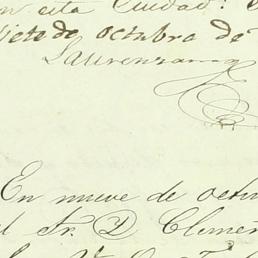 en esta Ciudad: 
siete de octubre de
Laurenzana
En nueve de octu
el Sr. D. Clemen